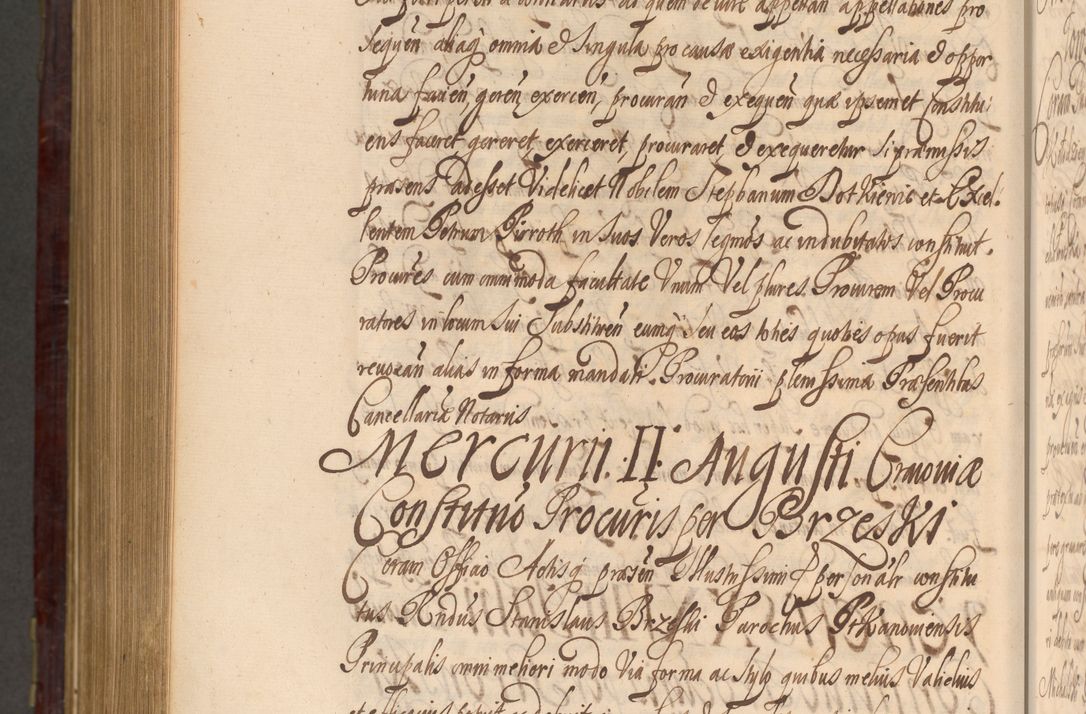 sequen̄ aliaq̃ omnia & singula pro causæ exigentia necessaria & oppor
tuna facien̄, geren̄, exercen̄, procuran̄ & exequen̄ quæ ipsemet Constitu:
ens faceret gereret, exerceret, procuraret, & exequeretur si præmissis
præsens adesset Videlicet Nobilem Stephanum Dotkiewic et Excel:
lentem Petrum Pirroth in suos Veros legm̃os ac indubitatos constituit.
Procur̃es cum omnimoda facultate Vnum Vel plures Procurem Vel Procu
ratores in locum sui Substituen̄ eumq̃ seu eos toties quoties opus fuerit
reuocan̄ alias in forma mandati Procuratorii plenissima Præsentibus
Cancellariæ Notariis
Mercurii. II. Augusti Cracoviæ
Constitutio Procur̃is per Brzeski
Coram Officio Actisq̃ præsen̄ Illustrissimi & personal̃r constitu
tus R̃ndus Stanislaus Brzeski Parochus Ptkanoviensis
Principalis omni meliori modo Via forma ac stylo quibus melius Validius